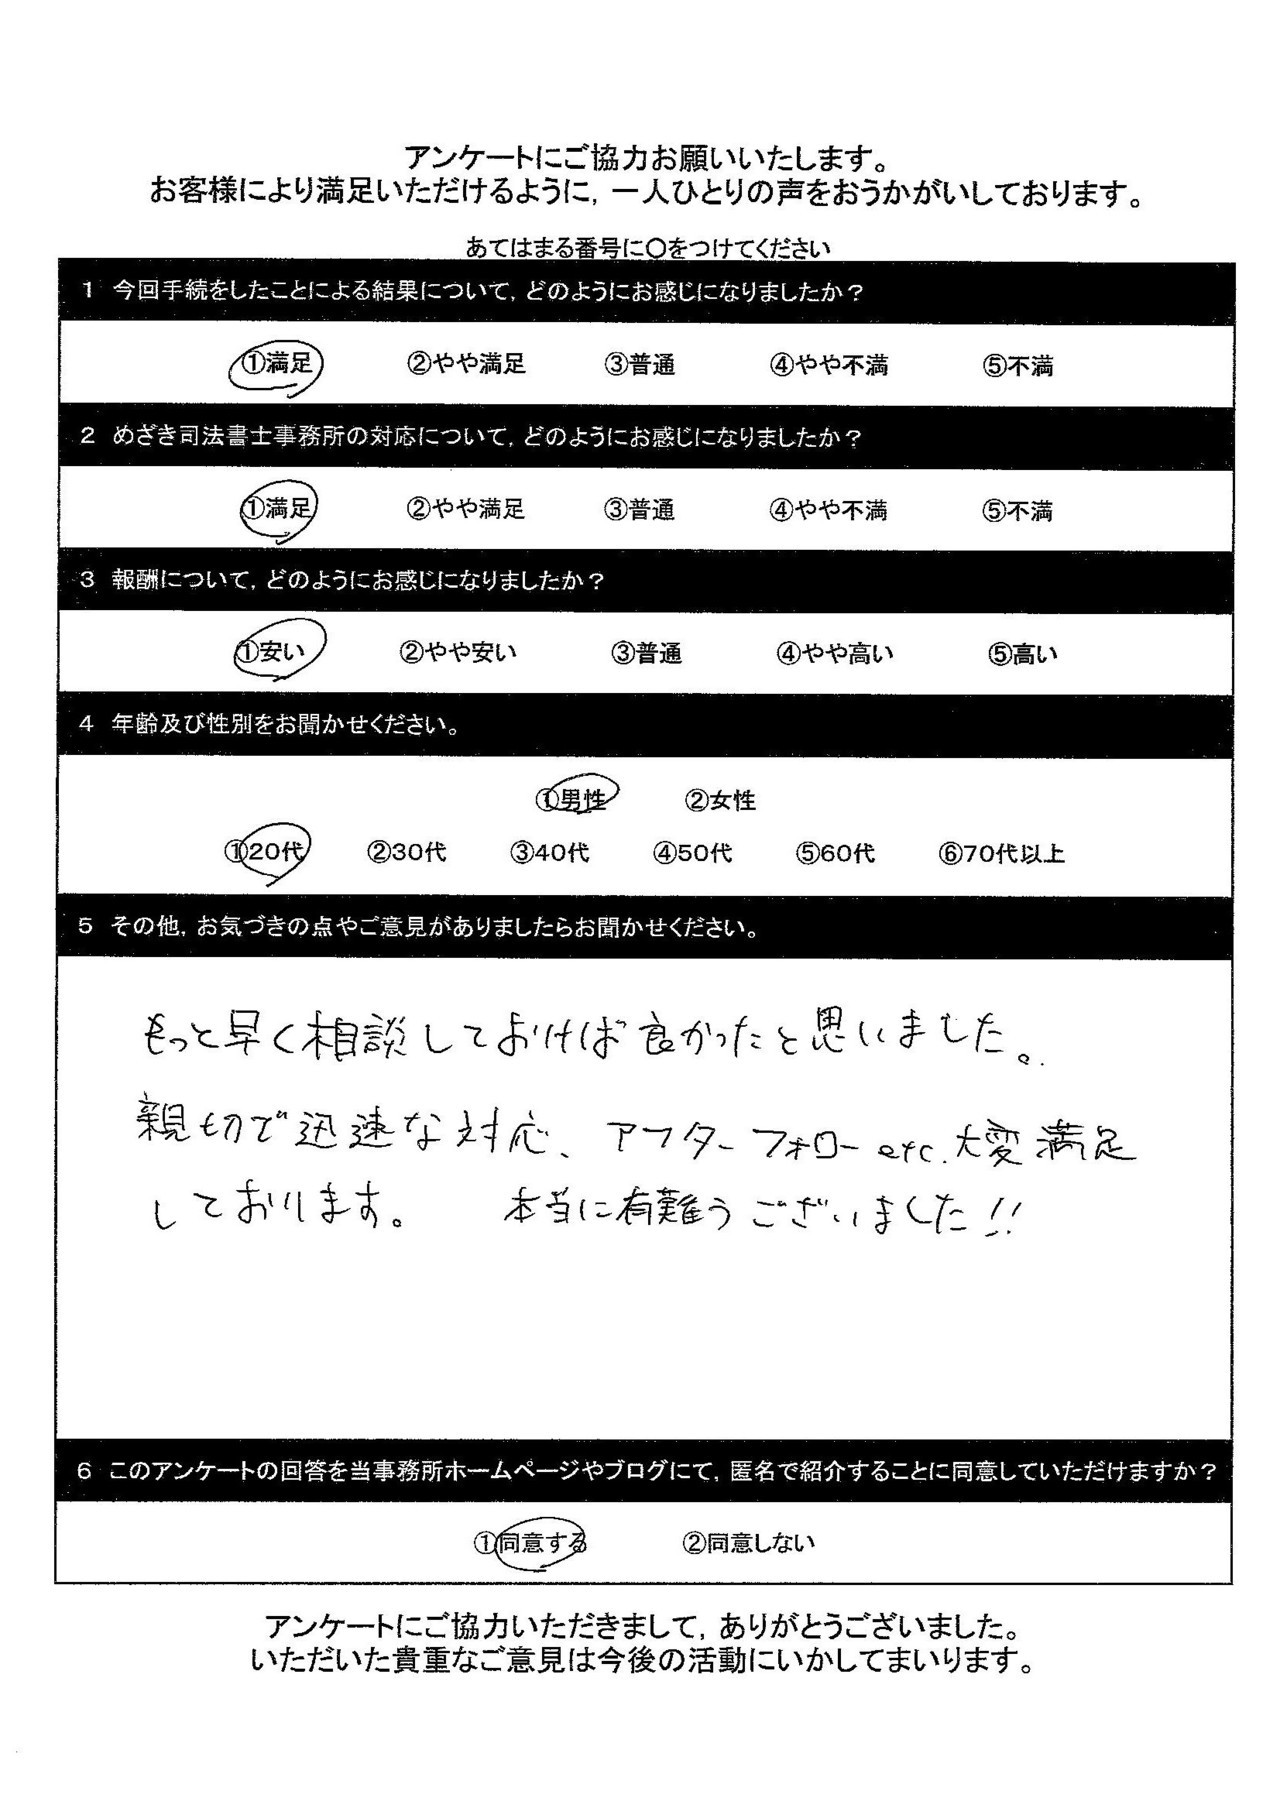 アンケートにご協力お願いいたします。
お客様により満足いただけるように, 一人ひとりの声をおうかがいしております。
あてはまる番号に○をつけてください
1 今回手続をしたことによる結果について, どのようにお感じになりましたか?
①満足 ②やや満足 ③普通 ④やや不満 ⑤不満
2 めざき司法書士事務所の対応について, どのようにお感じになりましたか?
①満足 ②やや満足 ③普通 ④やや不満 ⑤不満
3 報酬について, どのようにお感じになりましたか?
①安い ②やや安い ③普通 ④やや高い ⑤高い
4 年齢及び性別をお聞かせください。
①男性 ②女性
①20代 ②30代 ③40代 ④50代 ⑤60代 ⑥70代以上
5 その他, お気づきの点やご意見がありましたらお聞かせください。
もっと早く相談しておけば良かったと思いました。
親切で迅速な対応、アフターフォローetc.大変満足
しております。 本当に有難うございました!!
6 このアンケートの回答を当事務所ホームページやブログにて, 匿名で紹介することに同意していただけますか?
①同意する ②同意しない
アンケートにご協力いただきまして, ありがとうございました。
いただいた貴重なご意見は今後の活動にいかしてまいります。